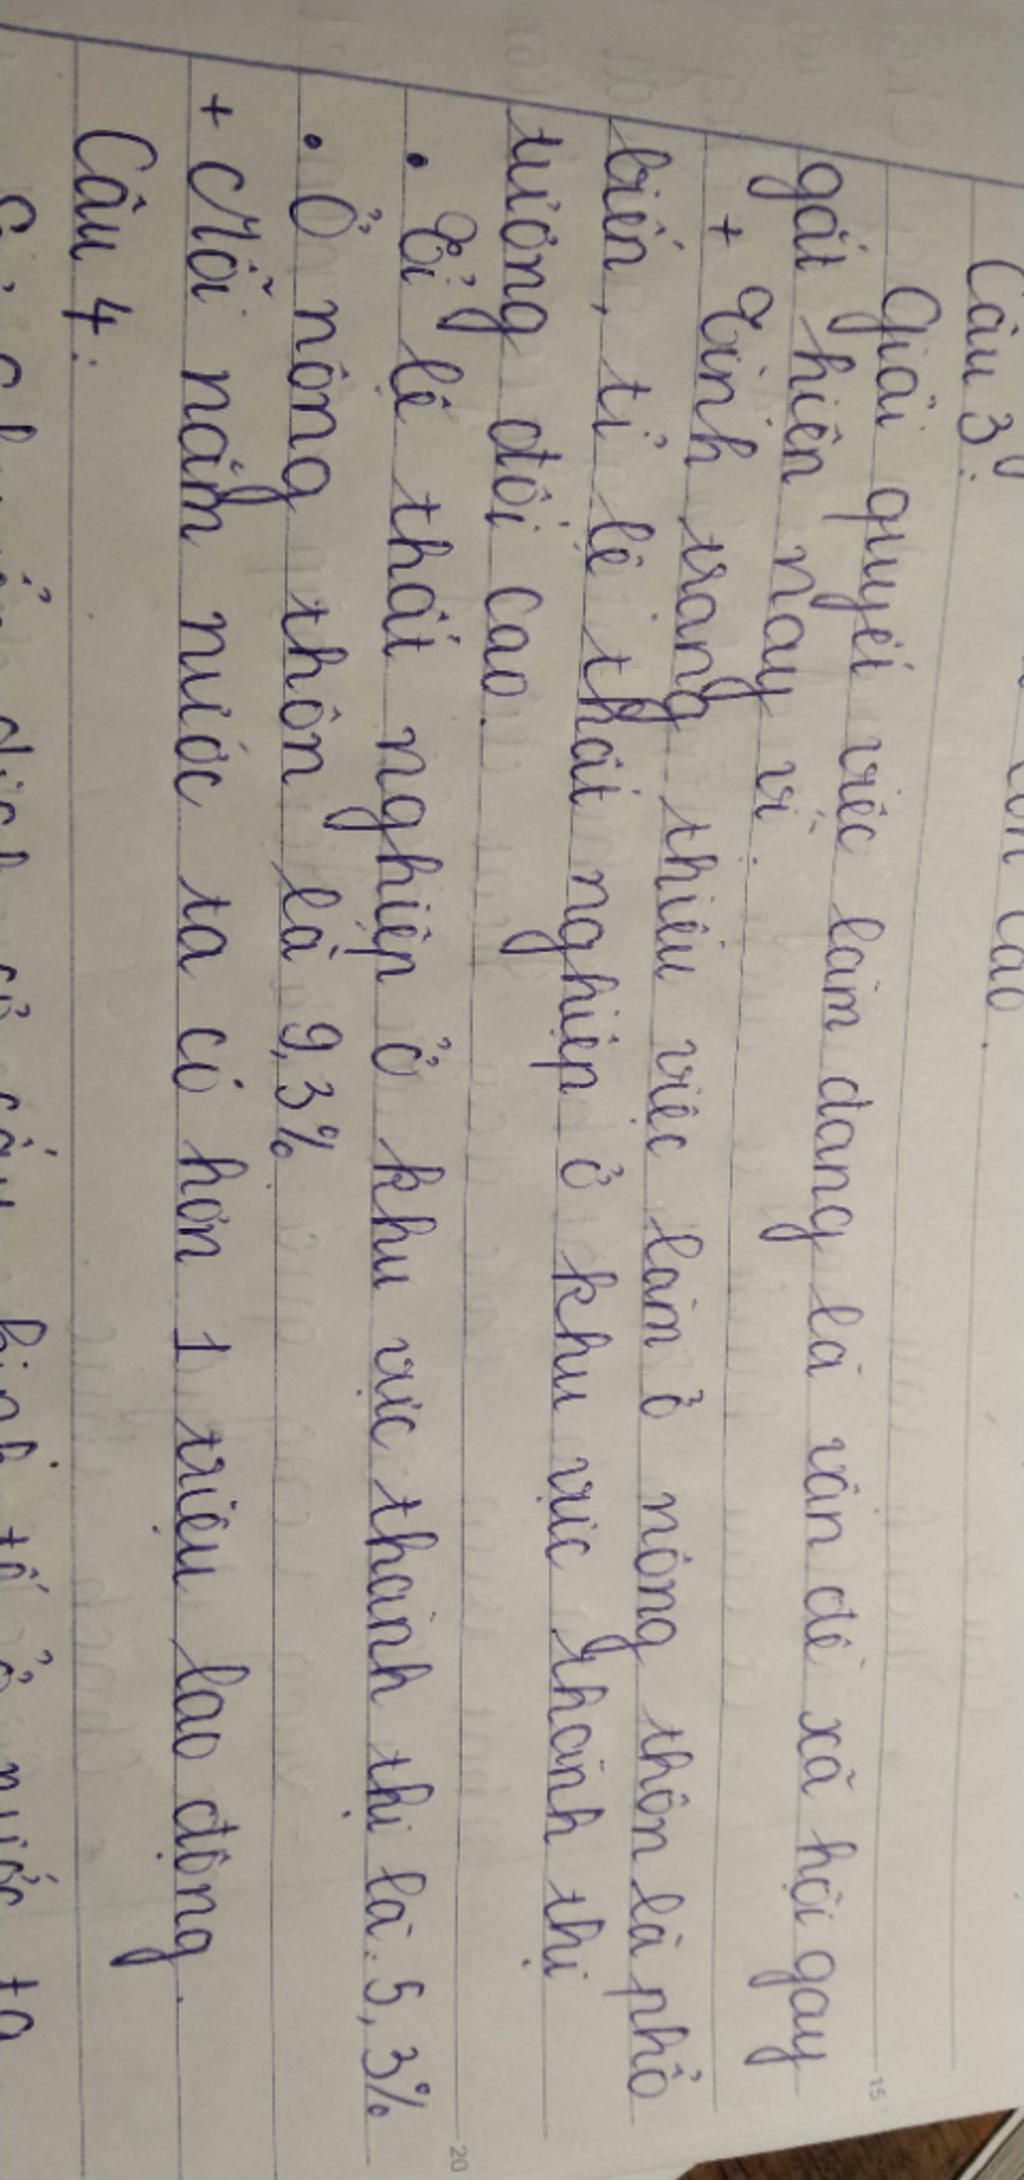 cao.
Câu 3:
Giải quyết việc làm đang là vấn đề xã hội gay
gắt hiện nay vì:
+ Tình trạng thiếu việc làm ở nông thôn là phổ
biến, tỉ lệ thất nghiệp ở khu vực thành thị
tương đối cao.
• Tỉ lệ thất nghiệp ở khu vực thành thị là: 5,3%
• Ở nông thôn là 9,3%.
+ Mỗi năm nước ta có hơn 1 triệu lao động.
Câu 4:
kinh tế ở nước ta
15
20